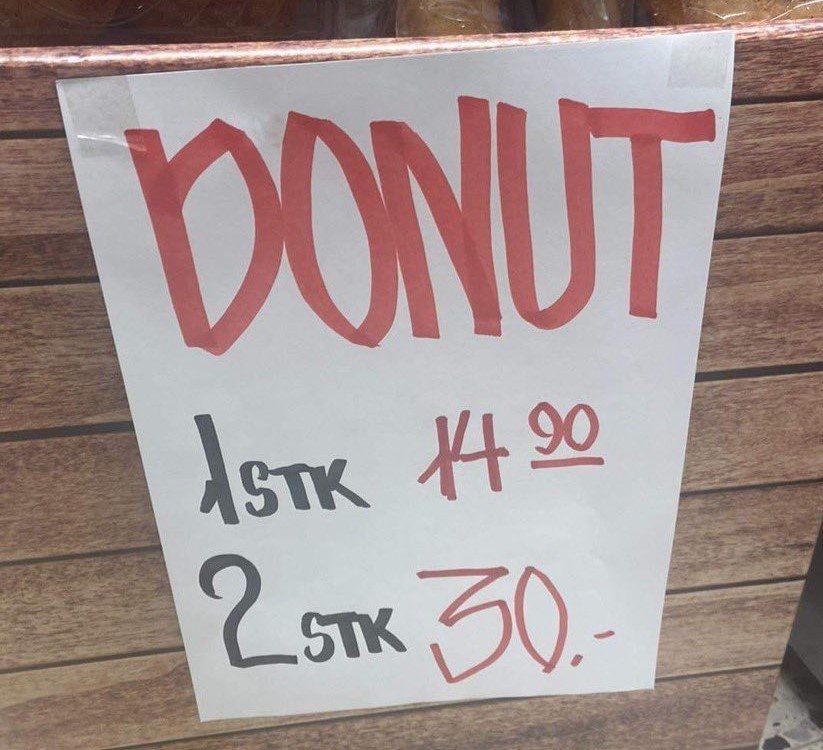 DONUT
1 STK 14 90
2 STK 30.-